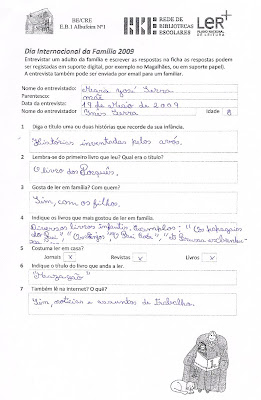 BE/CRE
E.B.1 Albufeira Nº1
REDE DE
BIBLIOTECAS
ESCOLARES
LER+
PLANO NACIONAL
DE LEITURA
Dia Internacional da Família 2009
Entrevistar um adulto da família e escrever as respostas na ficha as respostas podem
ser registadas em suporte digital, por exemplo no Magalhães, ou em suporte papel).
A entrevista também pode ser enviada por email para um familiar.
Nome do entrevistado: Maria José Serra
Parentesco: mãe
Data da entrevista: 19 de Maio de 2009
Nome do entrevistador Inês Serra Idade 8
1 Diga o título uma ou duas histórias que recorde da sua infância.
Histórias inventadas pelos avós.
2 Lembra-se do primeiro livro que leu? Qual era o título?
O livro dos Porquês.
3 Gosta de ler em família? Com quem?
Sim, com os filhos.
4 Indique os livros que mais gostou de ler em família.
Diversos livros infantis. Exemplos: "Os papagaios
5 Costuma ler em casa?
Jornais x Revistas x Livros x
6 Indique o título do livro que anda a ler.
7 Também lê na internet? O quê?
Sim, notícias e assuntos de trabalho.